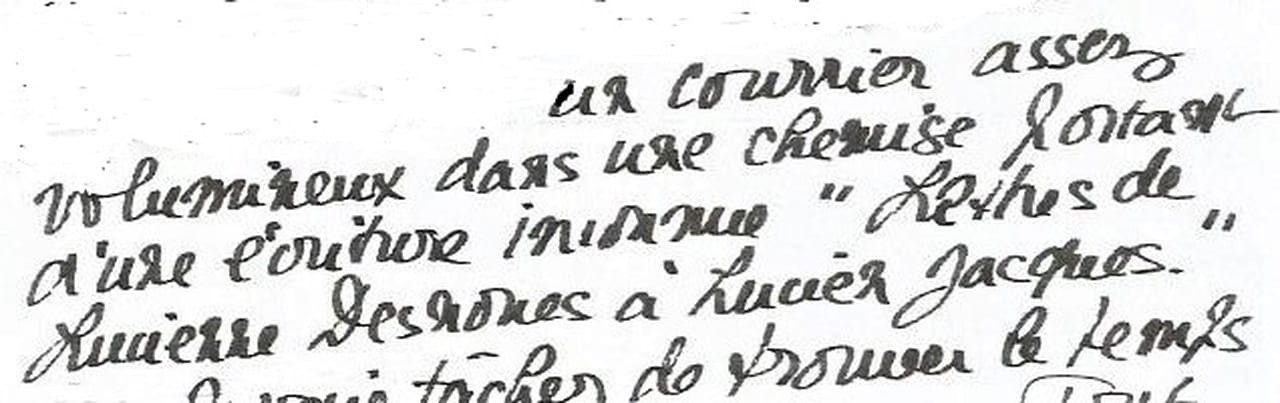 un courrier assez
volumineux dans une chemise portant
d'une écriture inconnue " Lettres de
Lucienne Desnoues à Lucien Jacques. "
Je vais tâcher de trouver le temps